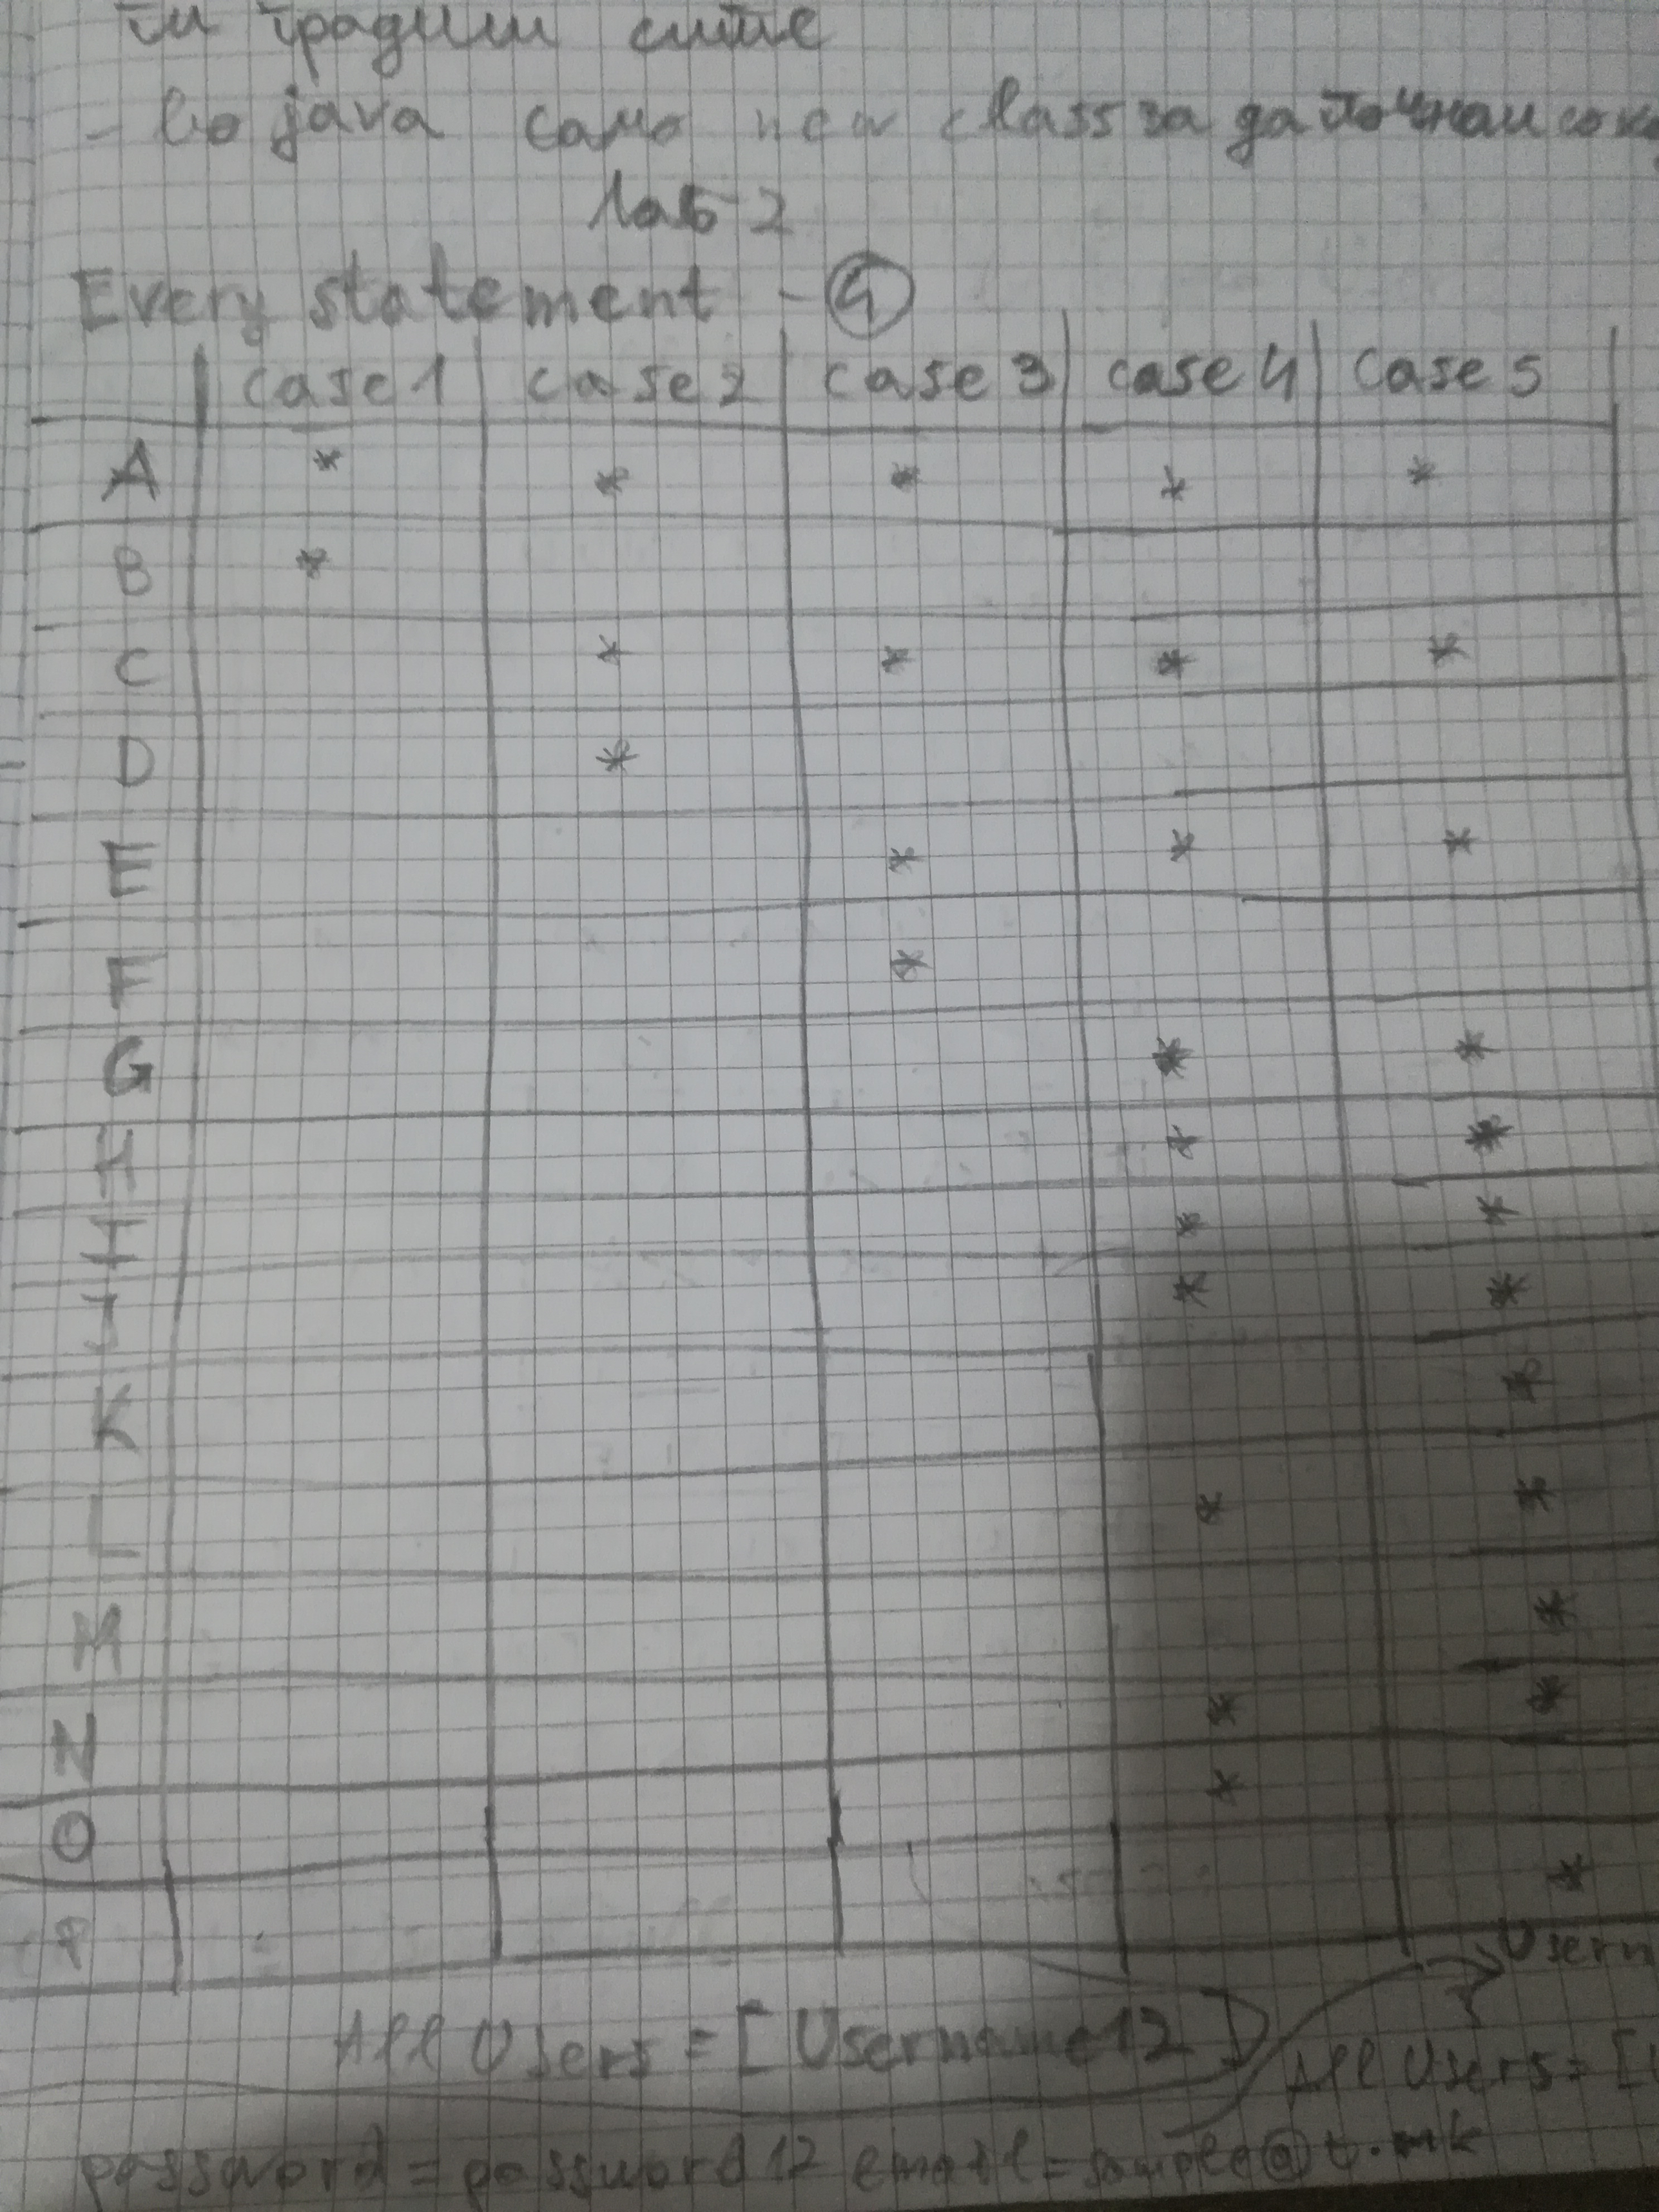 ги градиш сите
- во java само new class за да почнам со
lab 2
Every statement - 4
case 1 case 2 case 3 case 4 case 5
A * * * * *
B *
C * * * *
D *
E * * *
F *
G * *
H * *
I * *
J * *
K *
L * *
M *
N * *
O *
P *
Usern
All Users = [Username12]
All Users = [
password = password12 email = sample@t.mk